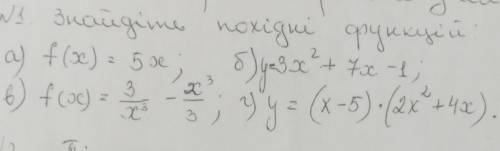 №1 Знайдіть похідні функцій:
а) f(x) = 5x; б) y=3x² + 7x -1;
в) f(x) = 3/x³ - x³/3; г) y = (x-5)·(2x²+4x).